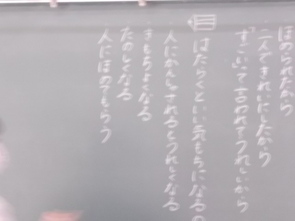 ほめられたから
二人できれいにしたから
すごいって言われてうれしいから
はたらくといい気もちになるの
人にかんしゃされるとうれしくなる
きもちよくなる
たのしくなる
人にほめてもらう